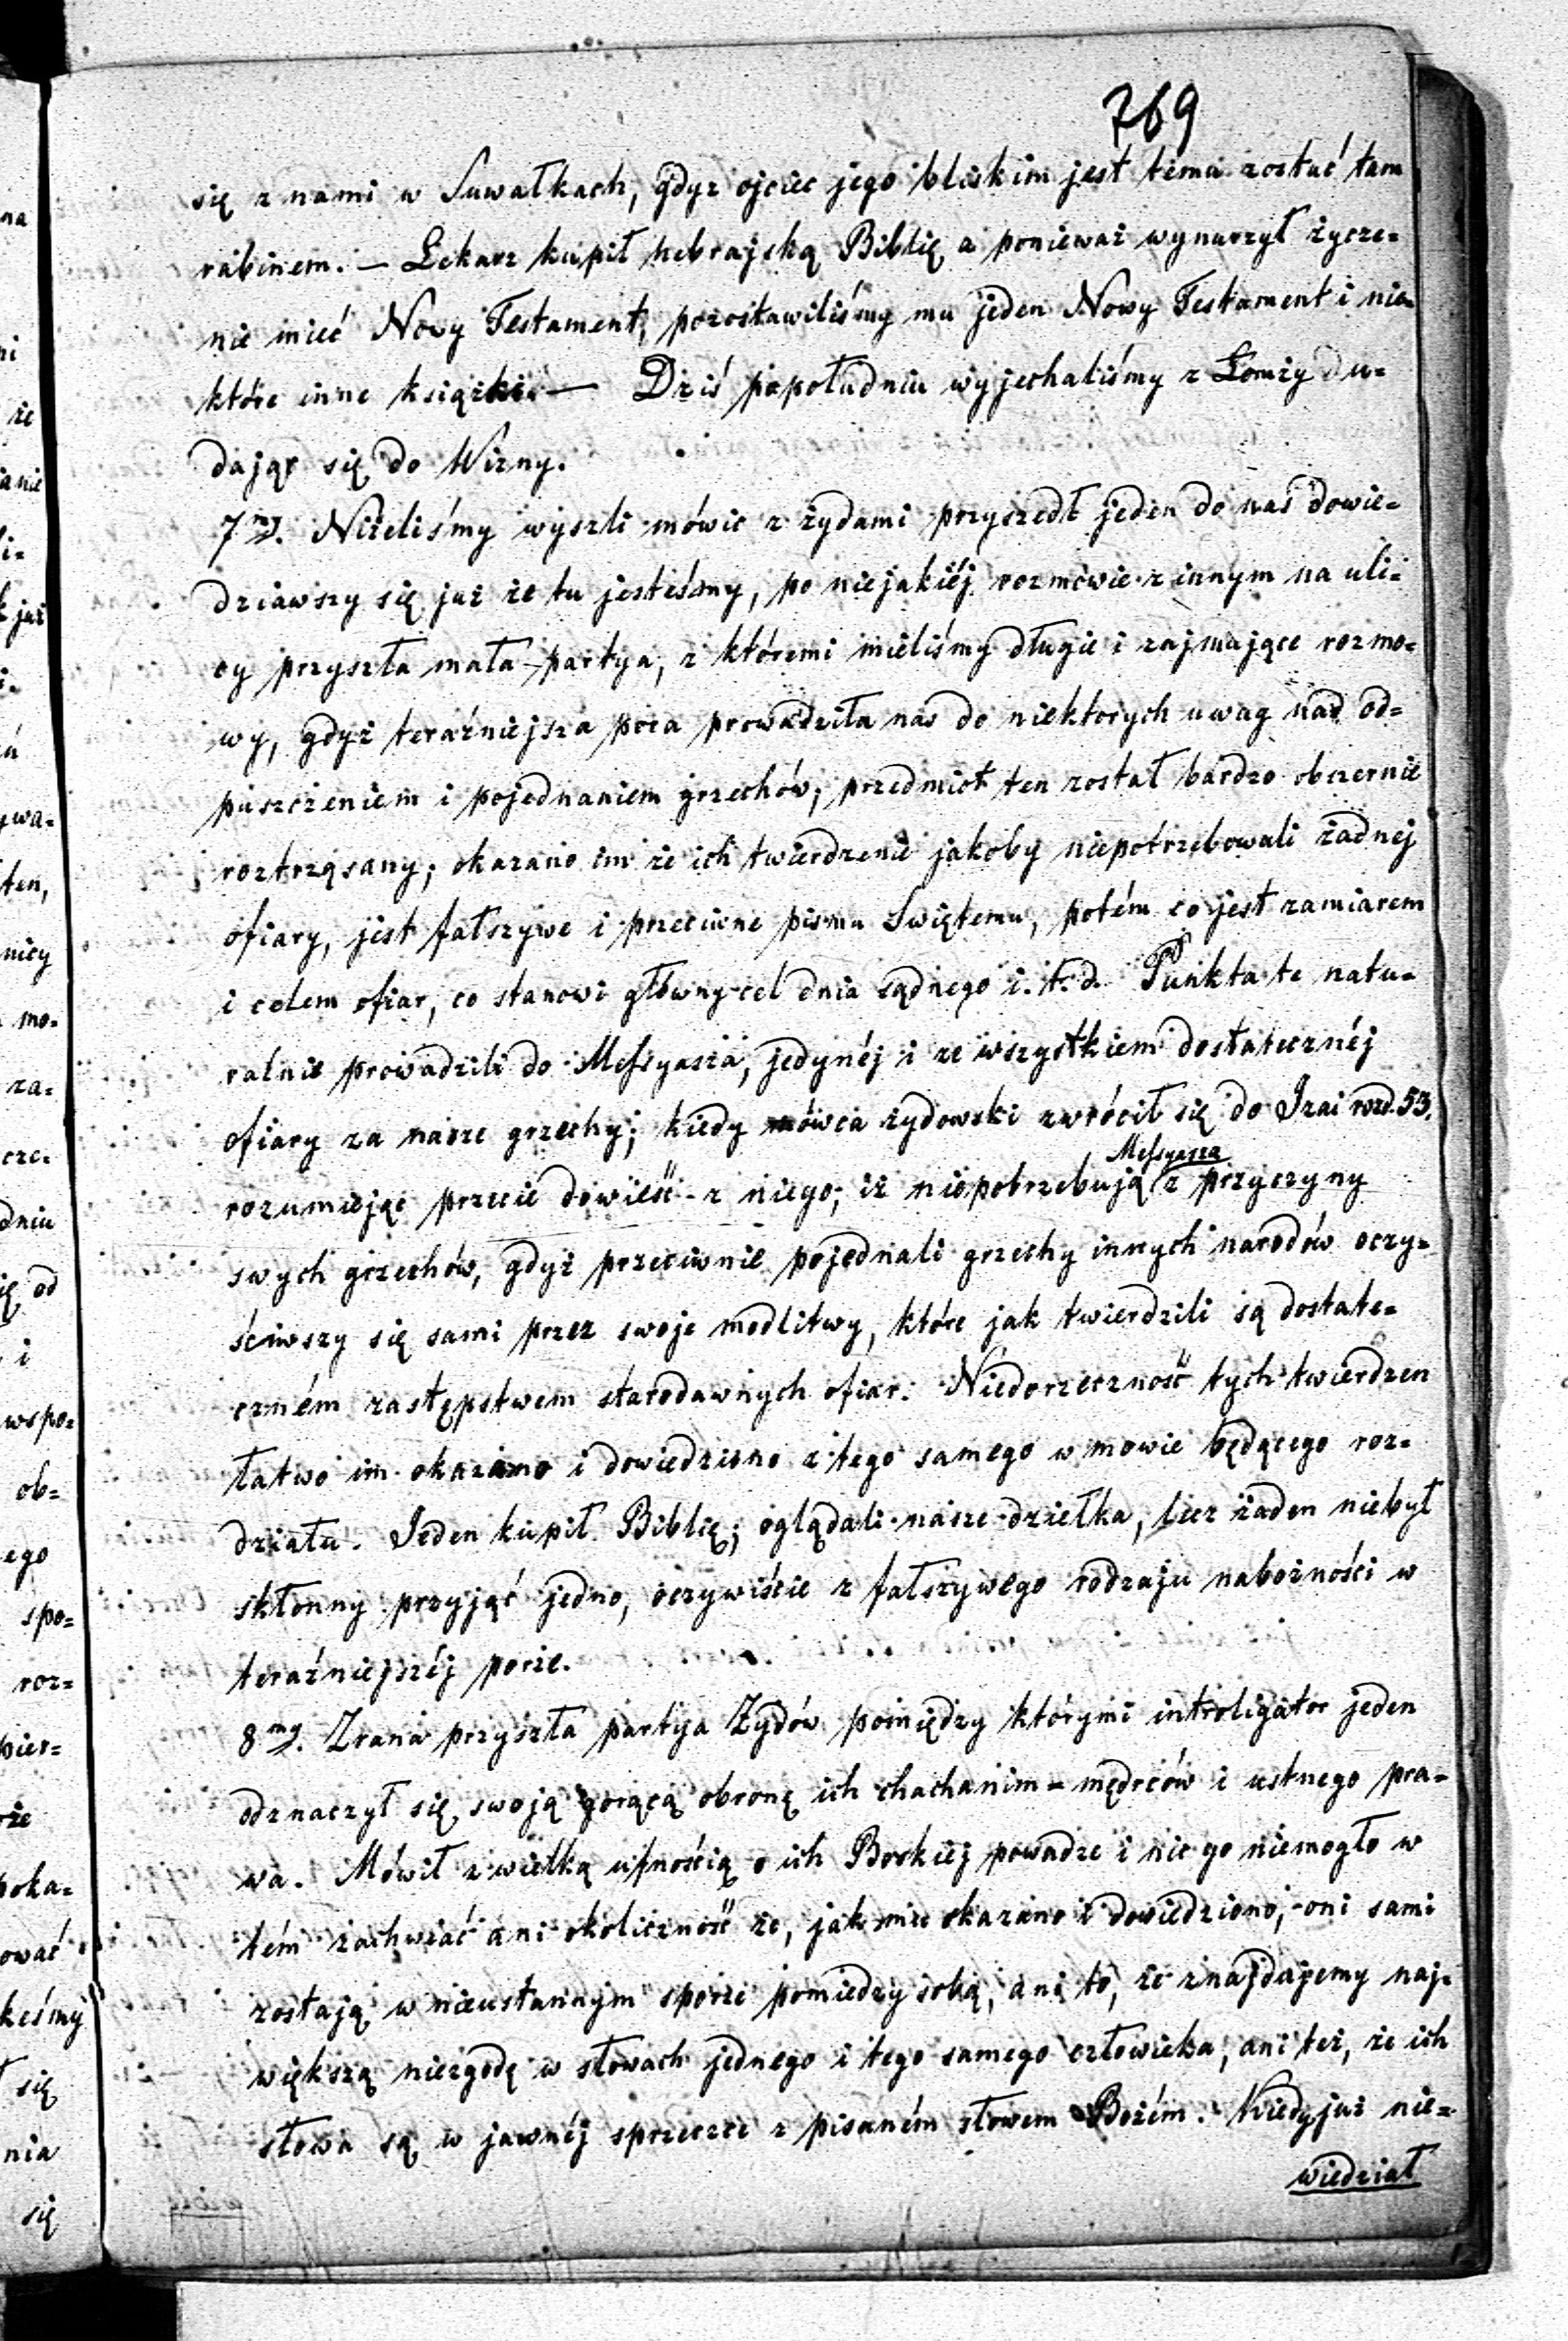 769
się z nami w Suwałkach, gdyż ojciec jego bliskim jest temu zostać tam
rabinem. — Lekarz kupił hebrajską Biblię a ponieważ wynurzył życze=
nie mieć Nowy Testament, pozostawiliśmy mu jeden Nowy Testament i nie=
które inne książki. — Dziś popołudniu wyjechaliśmy z Łomży du=
dając się do Wizny.
7my. Niżeliśmy wyszli mówic z żydami przyszedł jeden do nas dowie=
dziawszy się już że tu jesteśmy, po niejakiéj rozmówie z innym na uli=
cy przyszła mała partya, z któremi mieliśmy długie i zajmujące rozmo=
wy, gdyż teraźniejsza pora prowadziła nas do niektorych uwag nad od=
puszczeniem i pojednaniem grzechów; przedmiot ten został bardzo obszernie
roztrząsany; okazano im że ich twierdzenie jakoby niepotrzebowali żadnej
ofiary, jest fałszywe i przeciwne pismu Swiętemu, potém co jest zamiarem
i celem ofiar, co stanowi główny cel dnia sądnego i. t. d. Punkta te natu=
ralnie prowadzili do Messyasza, jedynéj i ze wszystkiem dostatecznéj
ofiary za nasze grzechy; kiedy mówca żydowski zwrócił się do Izai rozd. 53.
rozumiejąc przecie dowieść z niego, iż niepotrzebują Messyasza z przyczyny
swych grzechów, gdyż przeciwnie pojednali grzechy innych narodów oczy=
ściwszy się sami przez swoje modlitwy, które jak twierdzili są dostate=
czném zastępstwem starodawnych ofiar. Niedorzeczność tych twierdzen
łatwo im okazano i dowiedziono z tego samego w mowie będącego roz=
działu. Jeden kupił Biblię; oglądali nasze dziełka, lecz żaden niebył
skłonny przyjąć jedno, oczywiście z fałszywego rodzaju nabożności w
teraźniejszéj porze.
8my. Zrana przyszła partya Żydów pomiędzy którymi introligator jeden
odznaczył się swoją gorącą obroną ich chachanim - mędrców i ustnego pra=
wa. Mówił z wielką ufnością o ich Boskiej powadze i nic go niemogło w
tém zachwiać ani okoliczność że, jak mu okazano i dowiedziono, oni sami
zostają w nieustannym sporze pomiedzy sobą, ani to, że znajdajemy naj=
większą niezgodę w słowach jednego i tego samego człowieka, ani też, że ich
słowa są w jawnéj sprzeczce z pisaném słowem Bożém. Kiedy już nie=
wiedział